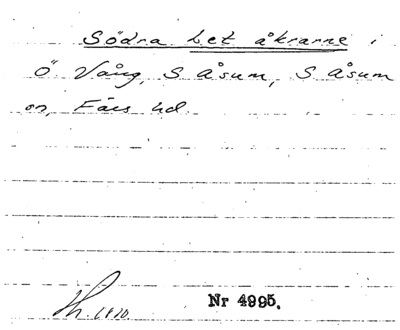 Södra Let åkrarne i
Ö Vång, S Åsum, S Åsum
sn, Färs hd.
Nr 4995.